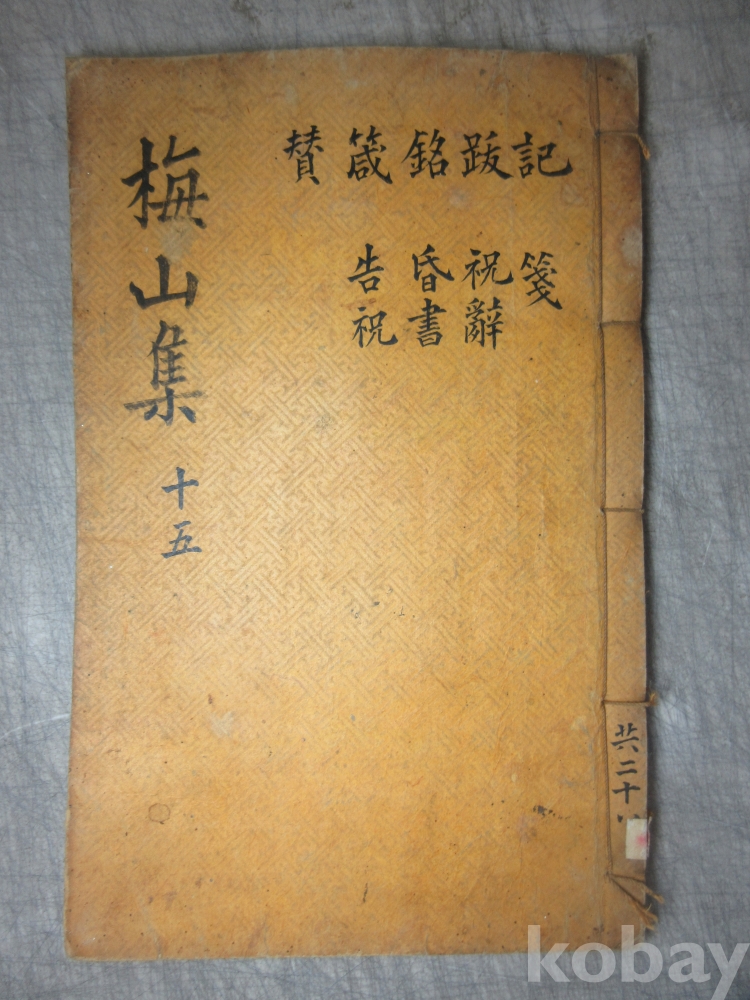 梅山集 十五
記 箋
跋 祝辭
銘 昏書
箴 告祝
賛
共二十
kobay